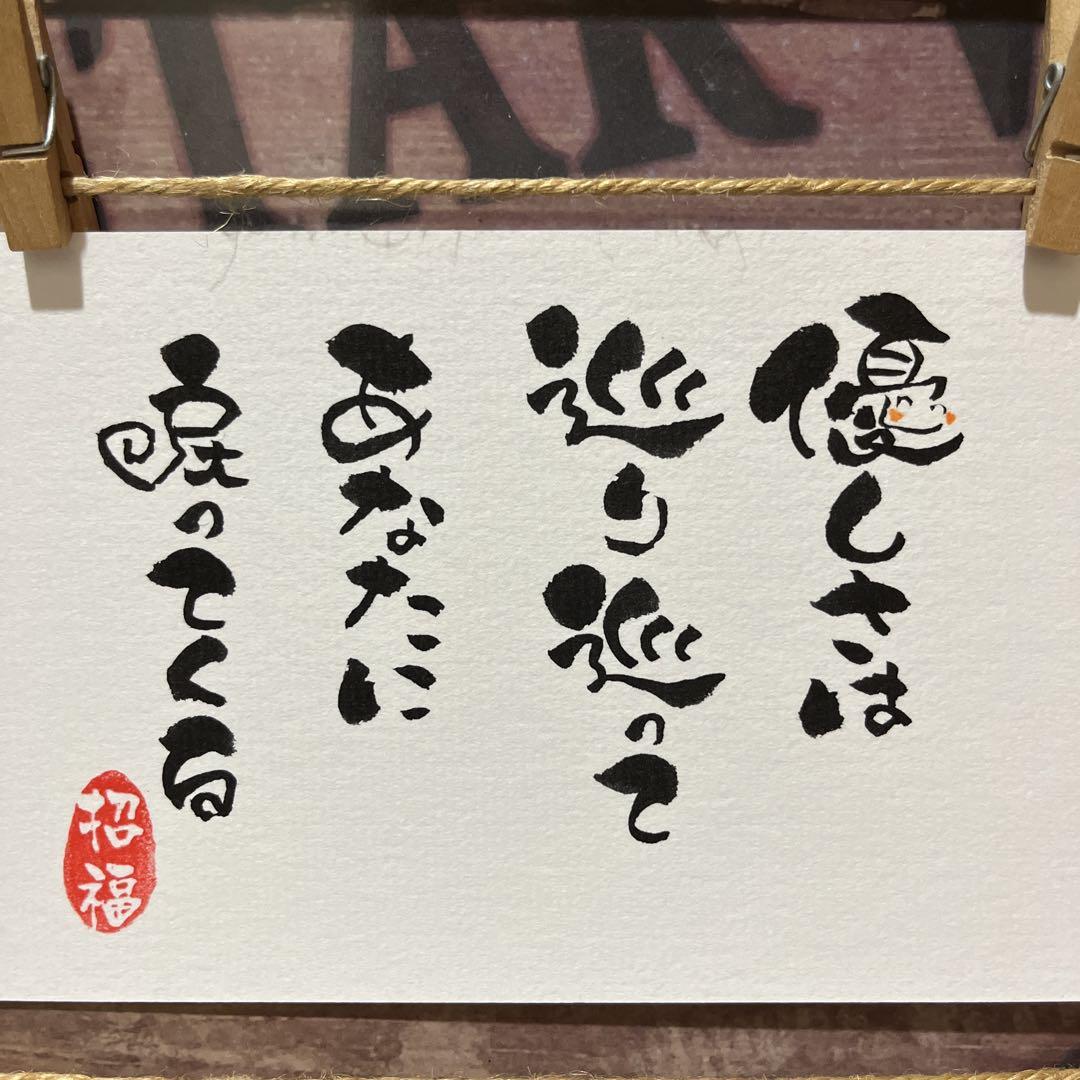 優しさは
巡り巡って
あなたに
戻ってくる
招福